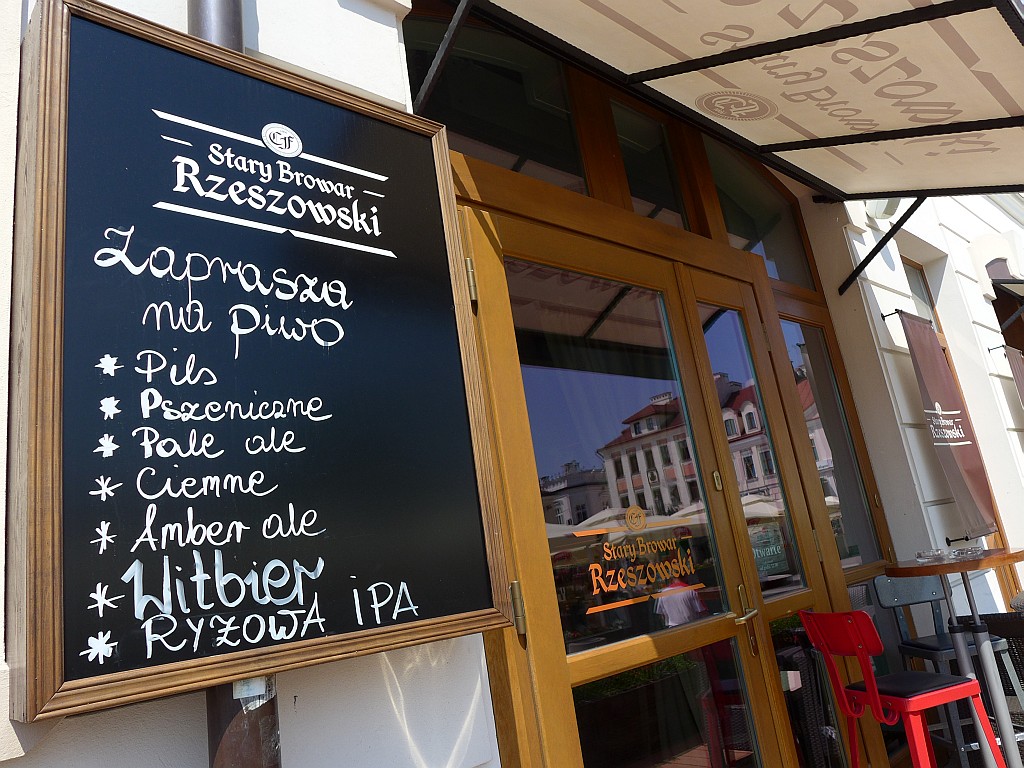 CF
Stary Browar
Rzeszowski
Zaprasza
na piwo
* Pils
* Pszeniczne
* Pale ale
* Ciemne
* Amber ale
* Witbier
* RYŻOWA IPA
Stary Browar
Rzeszowski
Otwarte
Stary Browar
Rzeszowski
Stary Browar
Rzeszowski